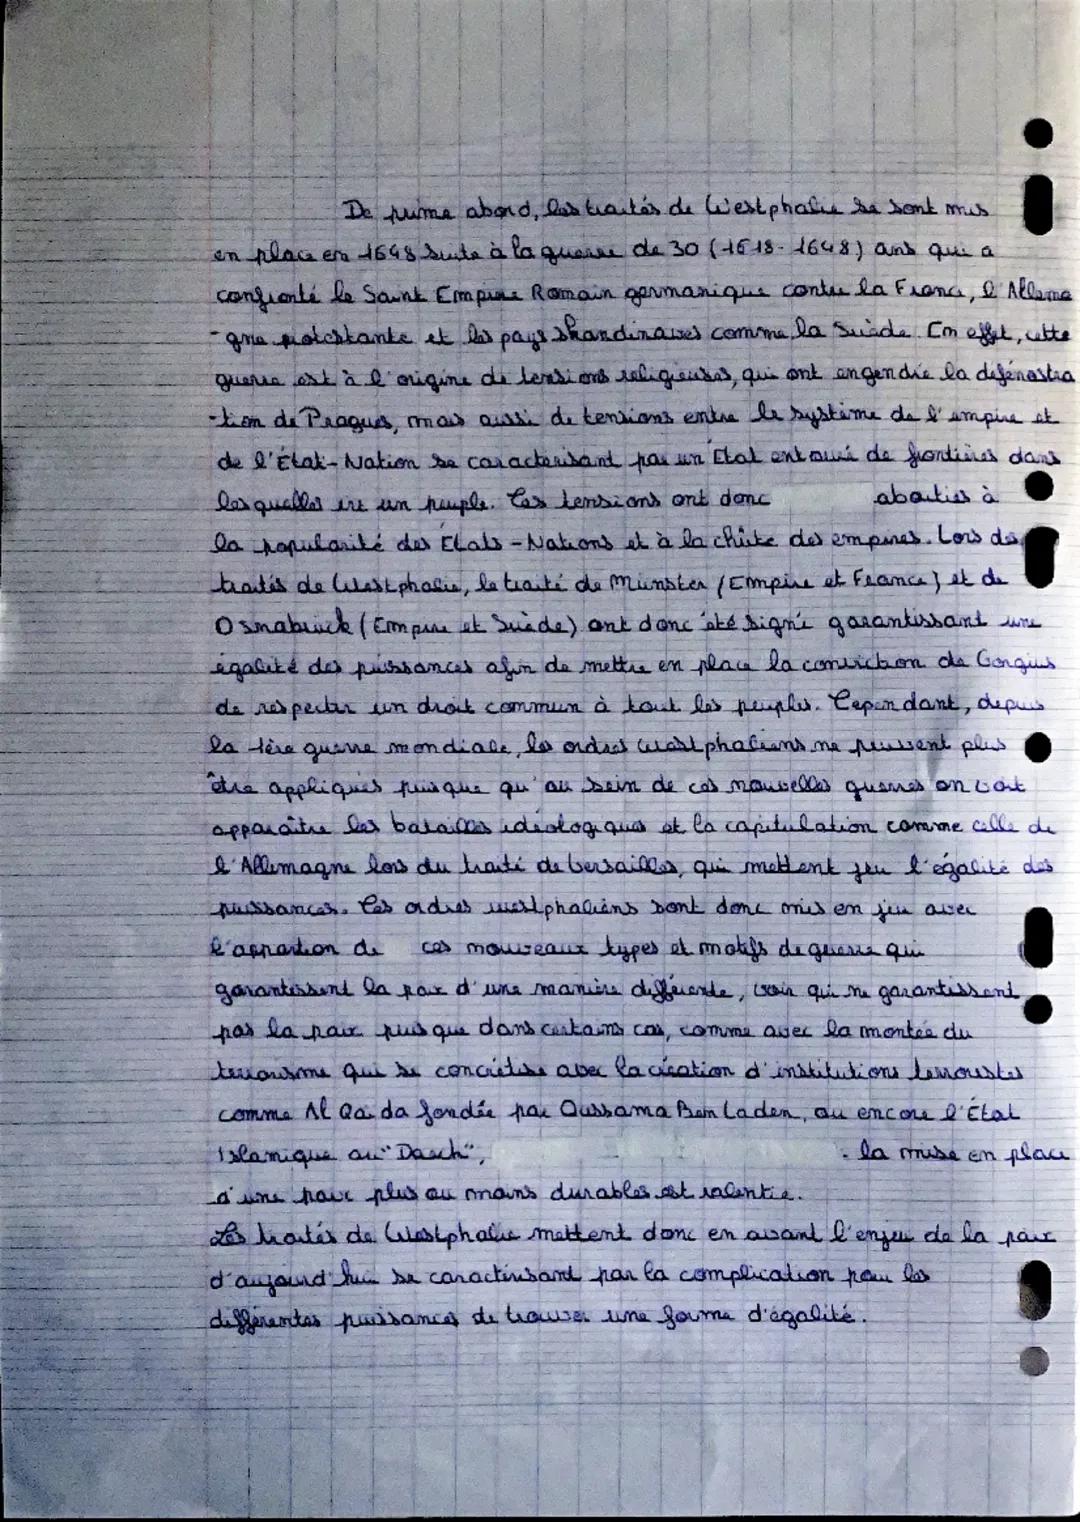 De prime abord, les traités de Westphalie se sont mis
en place en 1648 suite à la guerre de 30 (1618-1648) ans qui a
confronté le Saint Empire Romain germanique contre la France, l'Allema
-gne protestante et les pays skandinaves comme la Suède. En effet, cette
guerre est à l'origine de tensions religieuses, qui ont engendré la défénestra
-tion de Pragues, mais aussi de tensions entre le système de l'empire et
de l'État-Nation se caractérisant par un État entouré de frontières dans
lesquelles vit un peuple. Ces tensions ont donc abouties à
la popularité des États-Nations et à la chûte des empires. Lors des
traités de Westphalie, le traité de Münster (Empire et France) et de
Osnabrück (Empire et Suède) ont donc été signé garantissant une
égalité des puissances afin de mettre en place la conviction de Grogius
de respecter un droit commun à tout les peuples. Cependant, depuis
la 1ère guerre mondiale, les ordres westphaliens ne peuvent plus
être appliqués puisque qu'au sein de ces nouvelles guerres on voit
apparaître les batailles idéologiques et la capitulation comme celle de
l'Allemagne lors du traité de Versailles, qui mettent jeu l'égalité des
puissances. Ces ordres westphaliens sont donc mis en jeu avec
l'apparition de ces nouveaux types et motifs de guerre qui
garantissent la paix d'une manière différente, voir qui ne garantissent
pas la paix puisque dans certains cas, comme avec la montée du
terrorisme qui se concrétise avec la création d'institutions terroristes
comme Al Qaida fondée par Oussama Ben Laden, ou encore l'État
Islamique ou "Daech", la mise en place
d'une paix plus ou moins durables est ralentie.
Les traités de Westphalie mettent donc en avant l'enjeu de la paix
d'aujourd'hui se caractérisant par la complication pour les
différentes puissances de trouver une forme d'égalité.